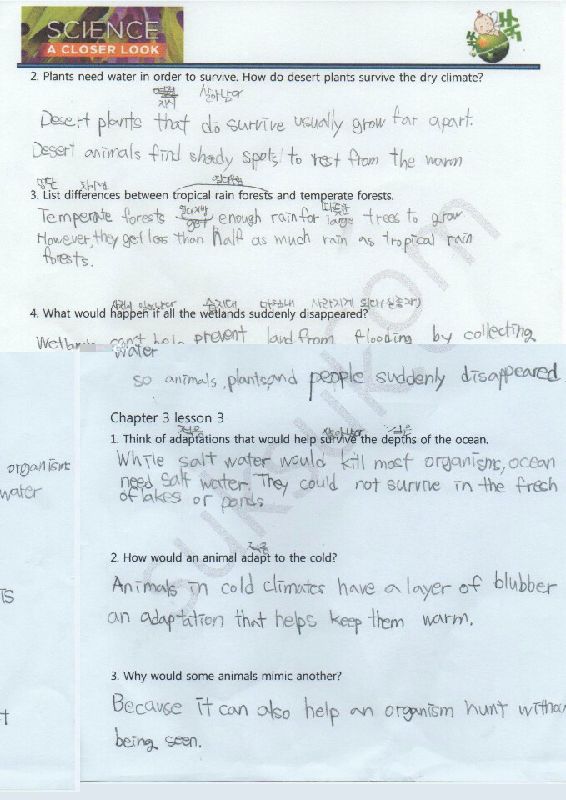 SCIENCE
A CLOSER LOOK
2. Plants need water in order to survive. How do desert plants survive the dry climate?
살아남다
Desert plants that do survive usually grow far apart.
Desert animals find shady spots to rest from the warm
3. List differences between tropical rain forests and temperate forests.
Temperate forests get enough rain for large trees to grow
However, they get less than half as much rain as tropical rain
forests.
4. What would happen if all the wetlands suddenly disappeared?
Wetlands can't help prevent land from flooding by collecting
water
so animals, plants, and people suddenly disappeared
Chapter 3 lesson 3
적응 살아남다 깊은
1. Think of adaptations that would help survive the depths of the ocean.
organisms
water
While salt water would kill most organisms, ocean
need salt water. They could not survive in the fresh
of lakes or ponds
적응
2. How would an animal adapt to the cold?
Animals in cold climates have a layer of blubber
an adaptation that helps keep them warm.
3. Why would some animals mimic another?
Because it can also help an organism hunt without
being seen.
suksuk.com